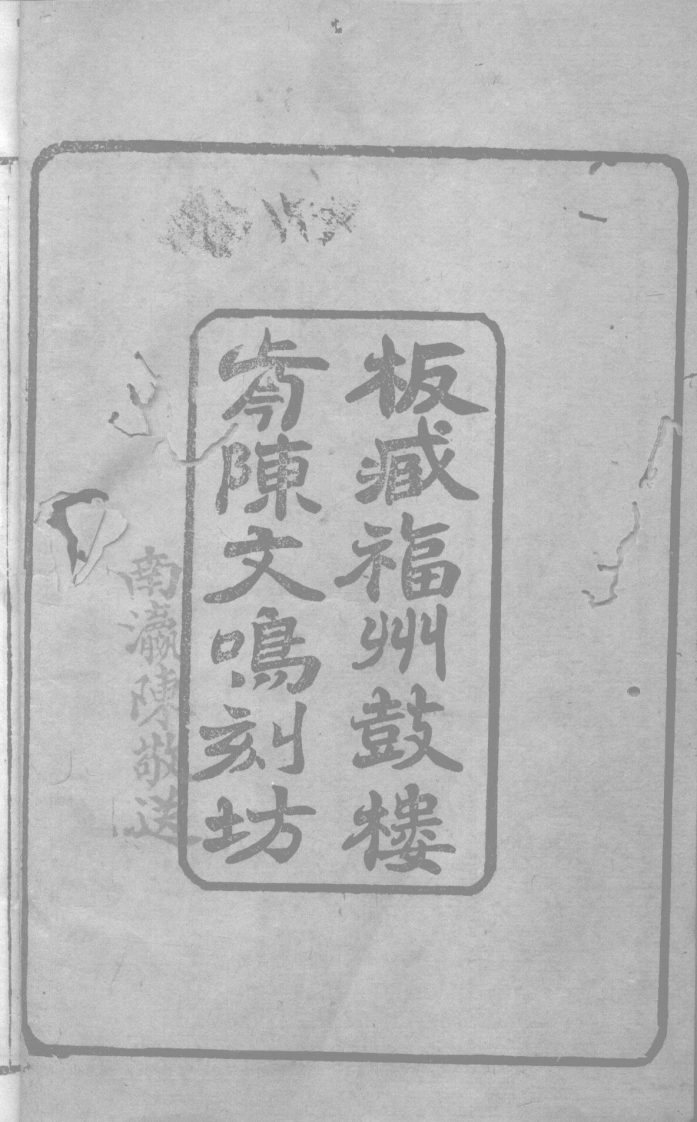 板藏福州鼓樓
前陳文鳴刻坊
南瀛陳敬送